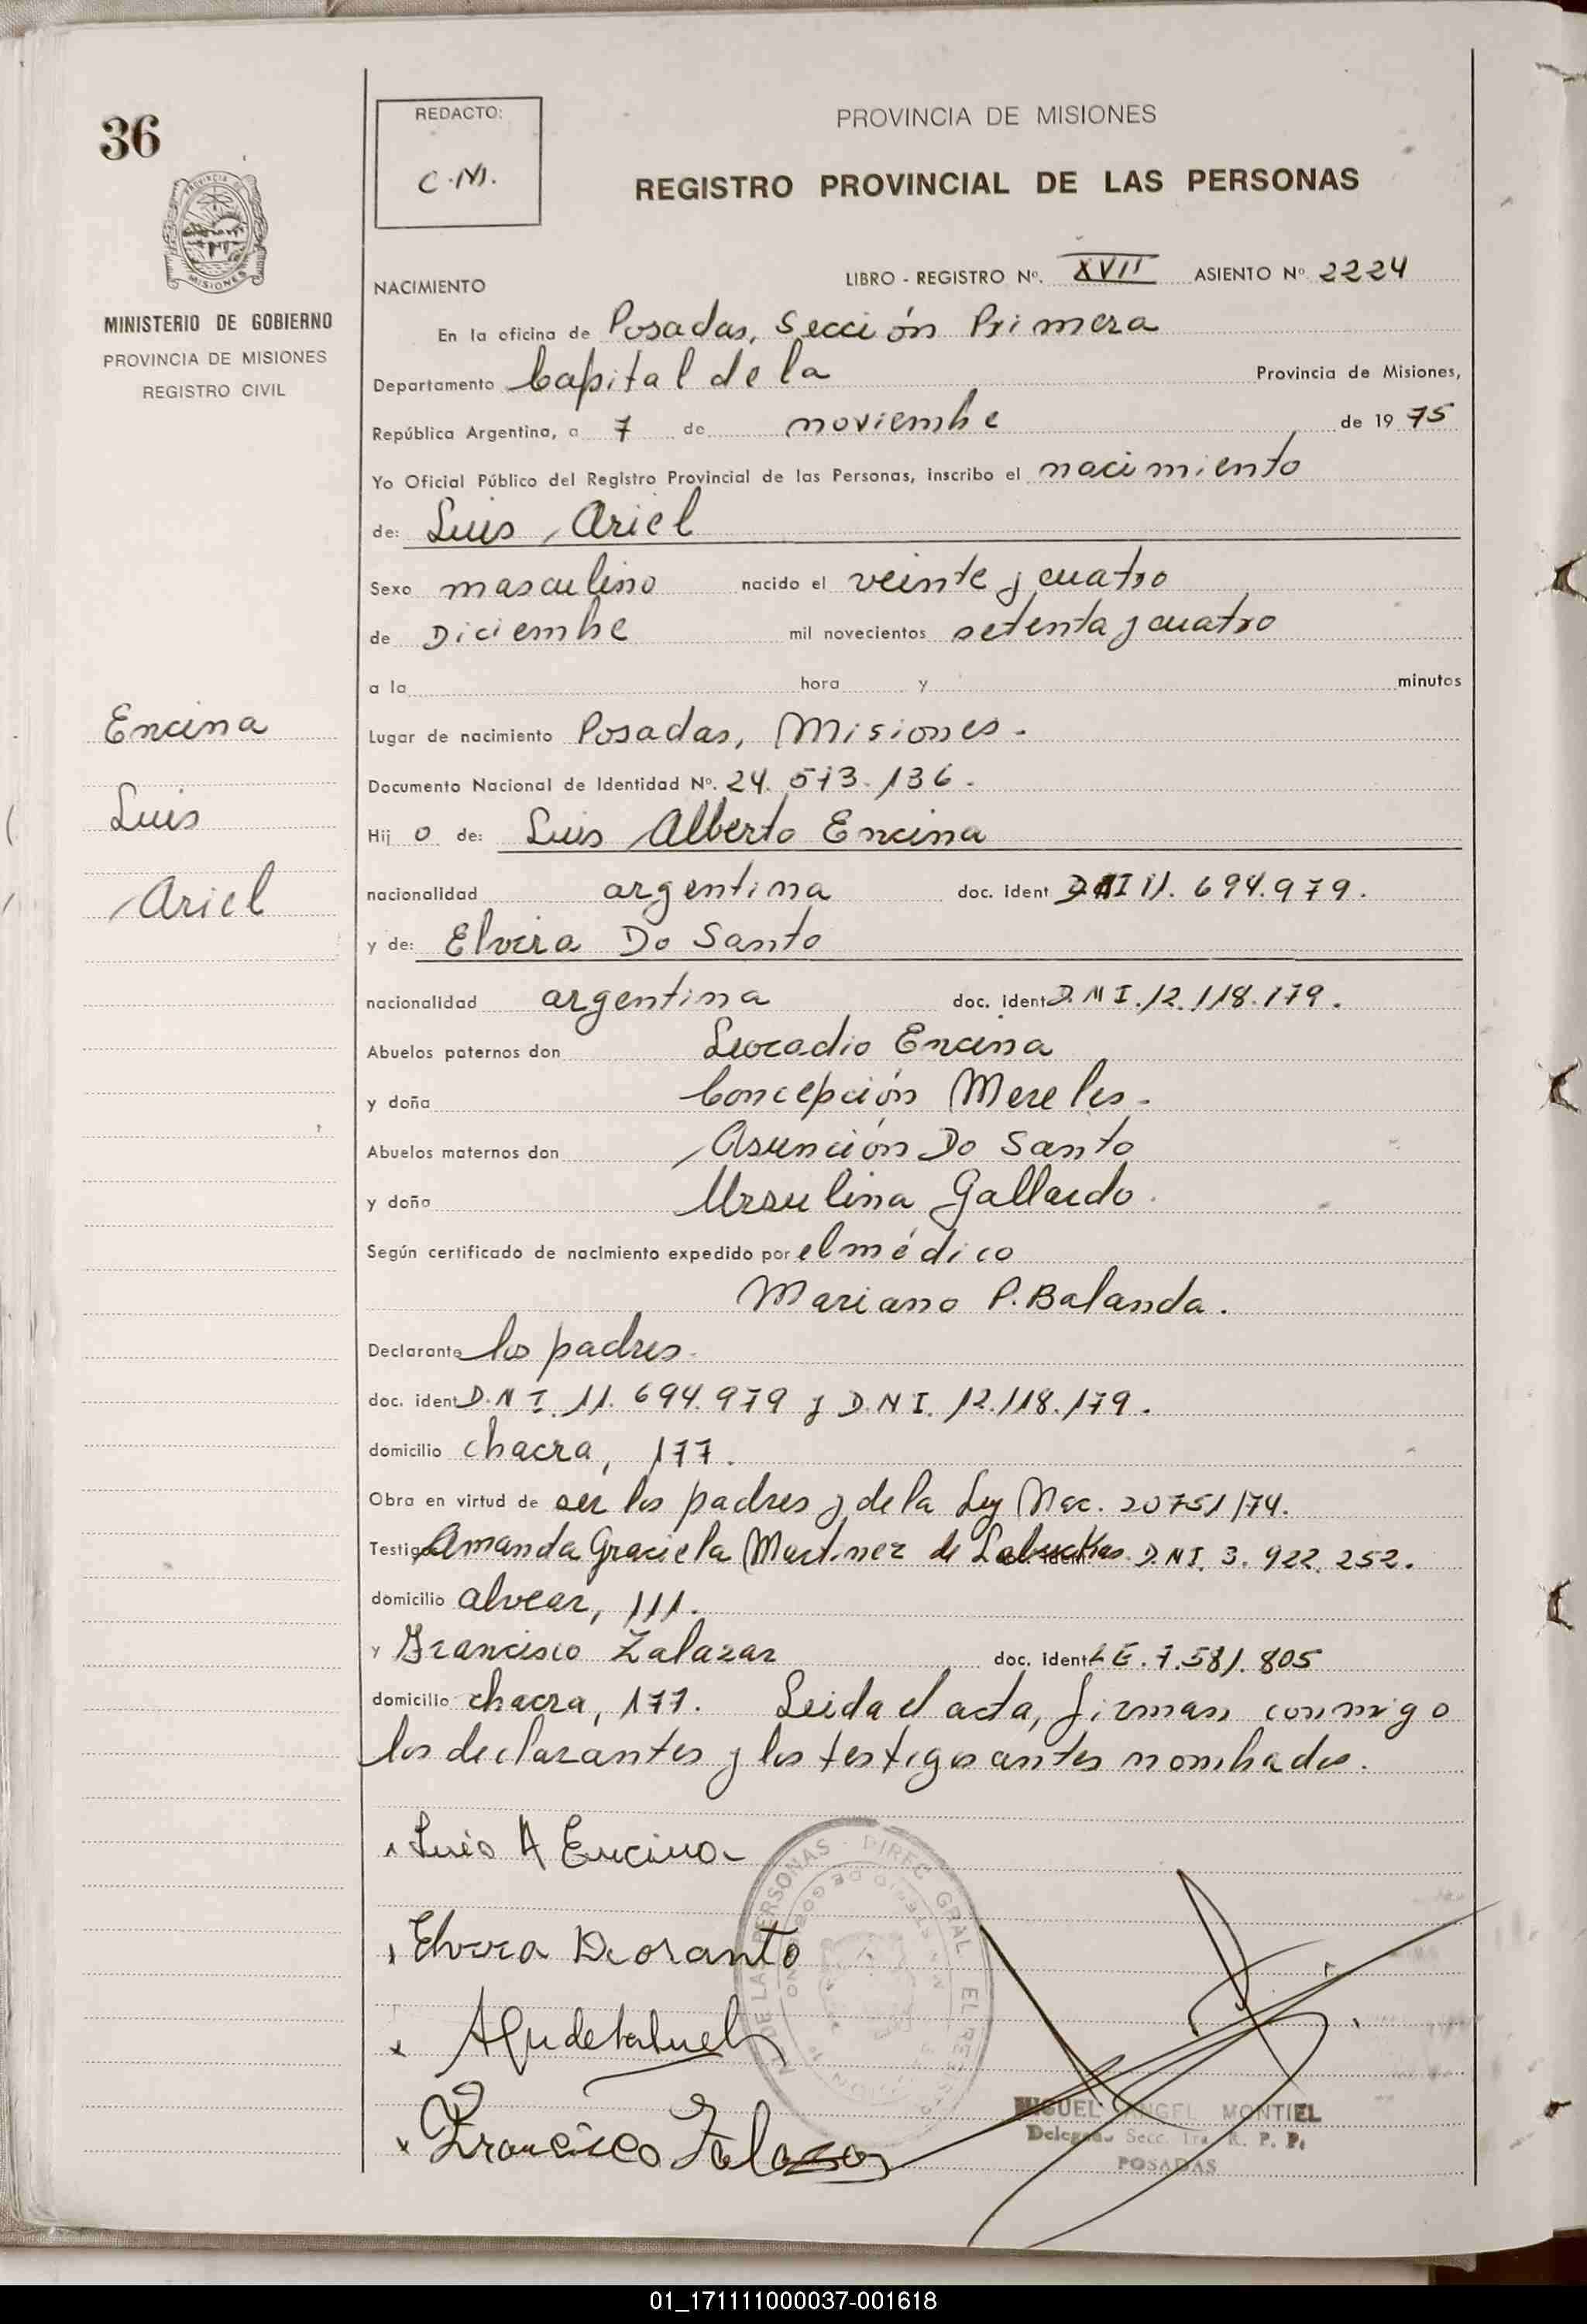 36
REDACTO:
C.M.
PROVINCIA DE MISIONES
REGISTRO PROVINCIAL DE LAS PERSONAS
PROVINCIA
MISIONES
MINISTERIO DE GOBIERNO
PROVINCIA DE MISIONES
REGISTRO CIVIL
NACIMIENTO LIBRO - REGISTRO Nº. XVII ASIENTO Nº 2224
En la oficina de Posadas, Sección Primera
Departamento Capital de la Provincia de Misiones,
República Argentina, a 7 de noviembre de 1975
Yo Oficial Público del Registro Provincial de las Personas, inscribo el nacimiento
de: Luis Ariel
Sexo masculino nacido el veinte y cuatro
de Diciembre mil novecientos setenta y cuatro
a la hora y minutos
Encina
Luis
Ariel
Lugar de nacimiento Posadas, Misiones.
Documento Nacional de Identidad Nº. 24.573.136.
Hij o de: Luis Alberto Encina
nacionalidad argentina doc. ident DNI 11.694.979.
y de: Elvira Do Santo
nacionalidad argentina doc. ident D.N I. 12.118.179.
Abuelos paternos don Leocadio Encina
y doña Concepción Mereles.
Abuelos maternos don Asunción Do Santo
y doña Ursulina Gallardo.
Según certificado de nacimiento expedido por el médico
Mariano P. Balanda.
Declarante los padres.
doc. ident D.N I. 11.694.979 y D.N I. 12.118.179.
domicilio chacra, 177.
Obra en virtud de ser los padres y de la Ley Nac. 20751/74.
Testigo Amanda Graciela Martinez de D.N I. 3.922.252.
domicilio alvear, 111.
y Francisco Zalazar doc. ident L E. 7.581.805
domicilio chacra, 177. Leida el acta, firman conmigo
los declarantes y los testigos antes nombrados.
Luis A Encina
Elvira Dosanto
Francisco Zalazar
DE LAS PERSONAS - DIREC GRAL EL REGISTRO
MIGUEL ANGEL MONTIEL
Delegado Secc. 1ra. R. P. P.
POSADAS
01_171111000037-001618